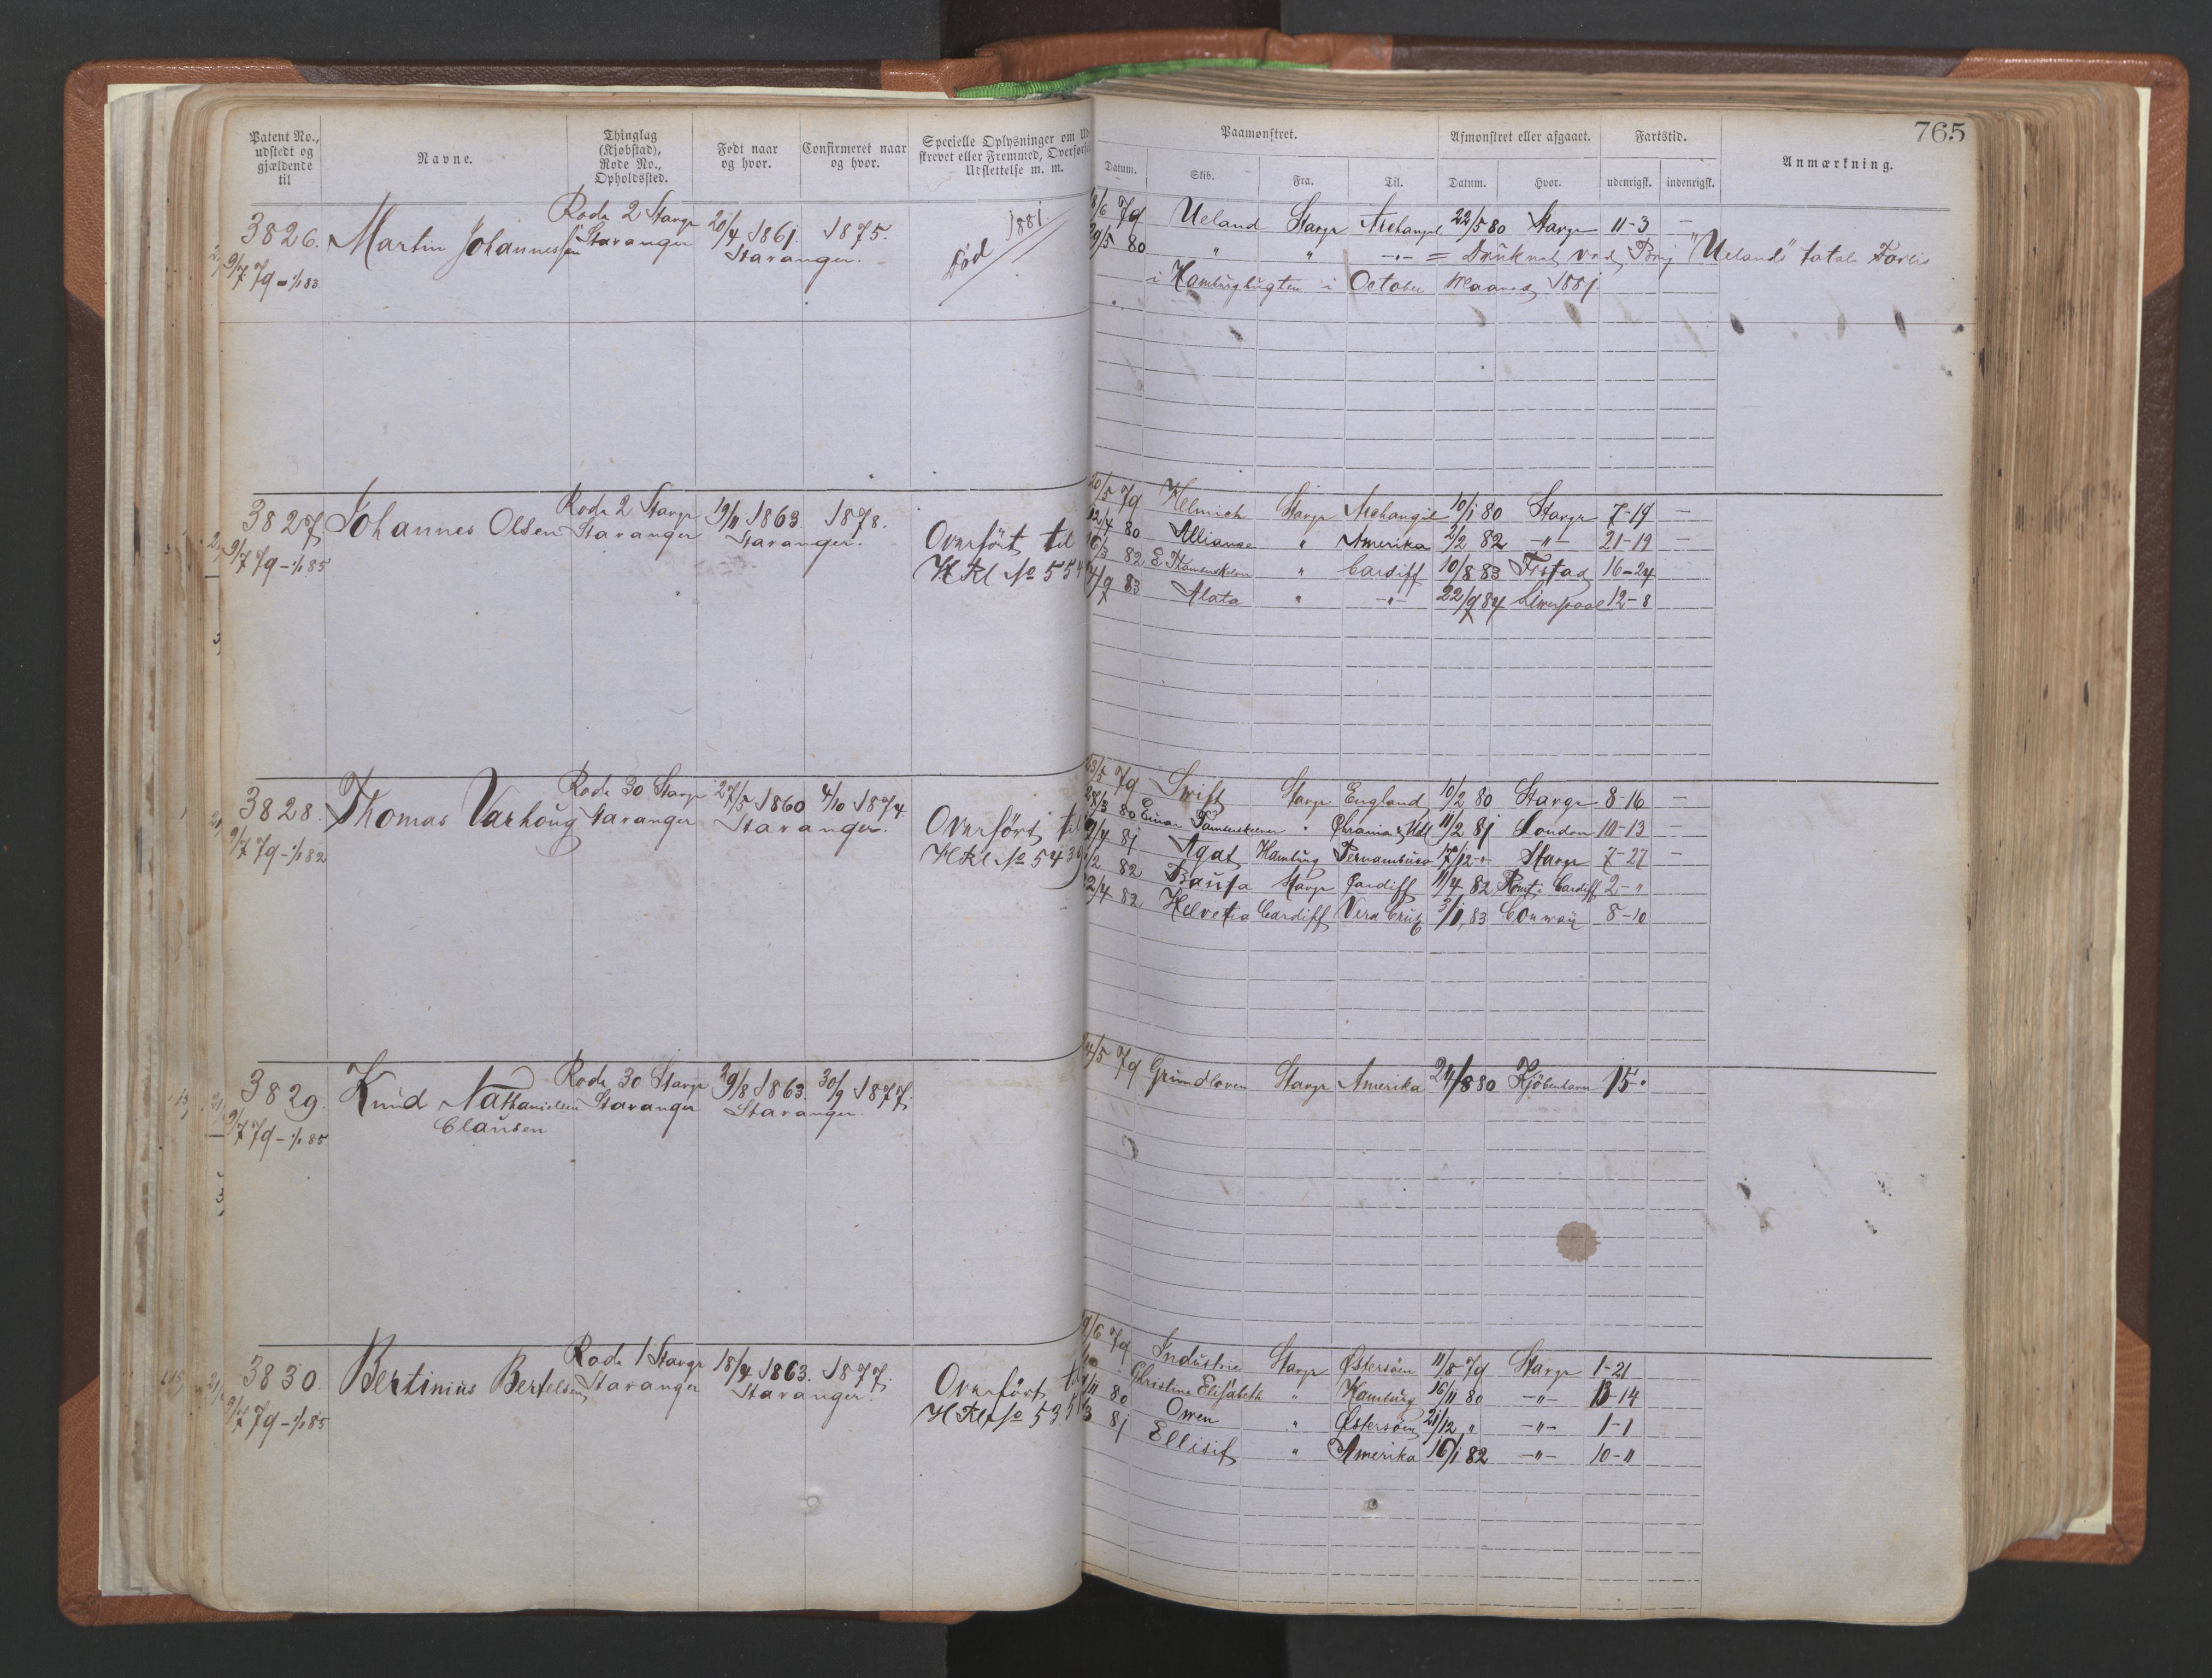 765
Patent No., udstedt og gjældende til
Navne.
Thinglag (Kjøbstad), Rode No., Opholdssted.
Født naar og hvor.
Confirmeret naar og hvor.
Specielle Oplysninger om
Udslettelse m. m.
Paamønstret.
Afmønstret eller afgaaet.
Fartstid.
Anmærkning.
Datum. Skib. Fra. Til. Datum. Hvor. udenrigsk. indenrigsk.
3826. Martin Johannessen Rode 2 Stavgr 20/4 1861. 1875.
9/7 79 - 1/1 83 Stavanger Stavanger.
Død 1881
8/6 79 Ueland Stavgr Archangel 22/5 80 Stavgr 11-3 —
29/5 80 " " -"- = Druknet ved Brig "Uelands" totale Forlis
i Hamburgbugten i October Maaned 1881.
3827. Johannes Olsen Rode 2 Stavgr 19/11 1863. 1878.
9/7 79 - 1/1 85 Stavanger Stavanger.
Overført til
H Rl No 554
20/5 79 Helmich Stavgr Archangel 10/1 80 Stavgr 7-19 —
12/4 80 Alliance " Amerika 2/2 82 -"- 21-19 —
16/3 82 E " Cardiff 10/8 83 Frstad 16-24
83 Alata " -"- 22/9 84 Liverpool 12-8
3828. Thomas Varhoug Rode 30 Stavgr 27/5 1860 4/10 1874.
9/7 79 - 1/1 82 Stavanger Stavanger.
Overført til
H Rl No 5439
23/5 79 Swift Stavgr England 10/2 80 Stavgr 8-16 —
80 Einar Tambarskelver " Chrania & Udl 11/2 81 London 10-13 —
2/4 81 Agat Hamburg Pernambuco 17/12 " Stavgr 7-27 —
82 Stavgr Cardiff 11/4 82 Rømt i Cardiff 2-"
2/4 82 Helvetia Cardiff Vera Cruz 3/1 83 Conway 8-10
3829. Knud Nathanielsen Rode 30 Stavgr 29/8 1863. 30/9 1877.
9/7 79 - 1/1 85 Clausen Stavanger Stavanger.
4/5 79 Grundloven Stavgr Amerika 24/8 80 Kjöbenhavn 15.
3830. Bertinius Bertelsen Rode 1 Stavgr 18/4 1863. 1877.
9/7 79 - 1/1 85 Stavanger Stavanger.
Overført til
H Rl No 535
9/6 79 Industrie Stavgr Østersøen 11/8 79 Stavgr 1-21
Christine Elisabeth " Hamburg 16/11 80 -"- 13-14
80 Owen " Østersøen 21/12 " -"- 1-1
81 Ellisif " Amerika 16/1 82 -"- 10-11